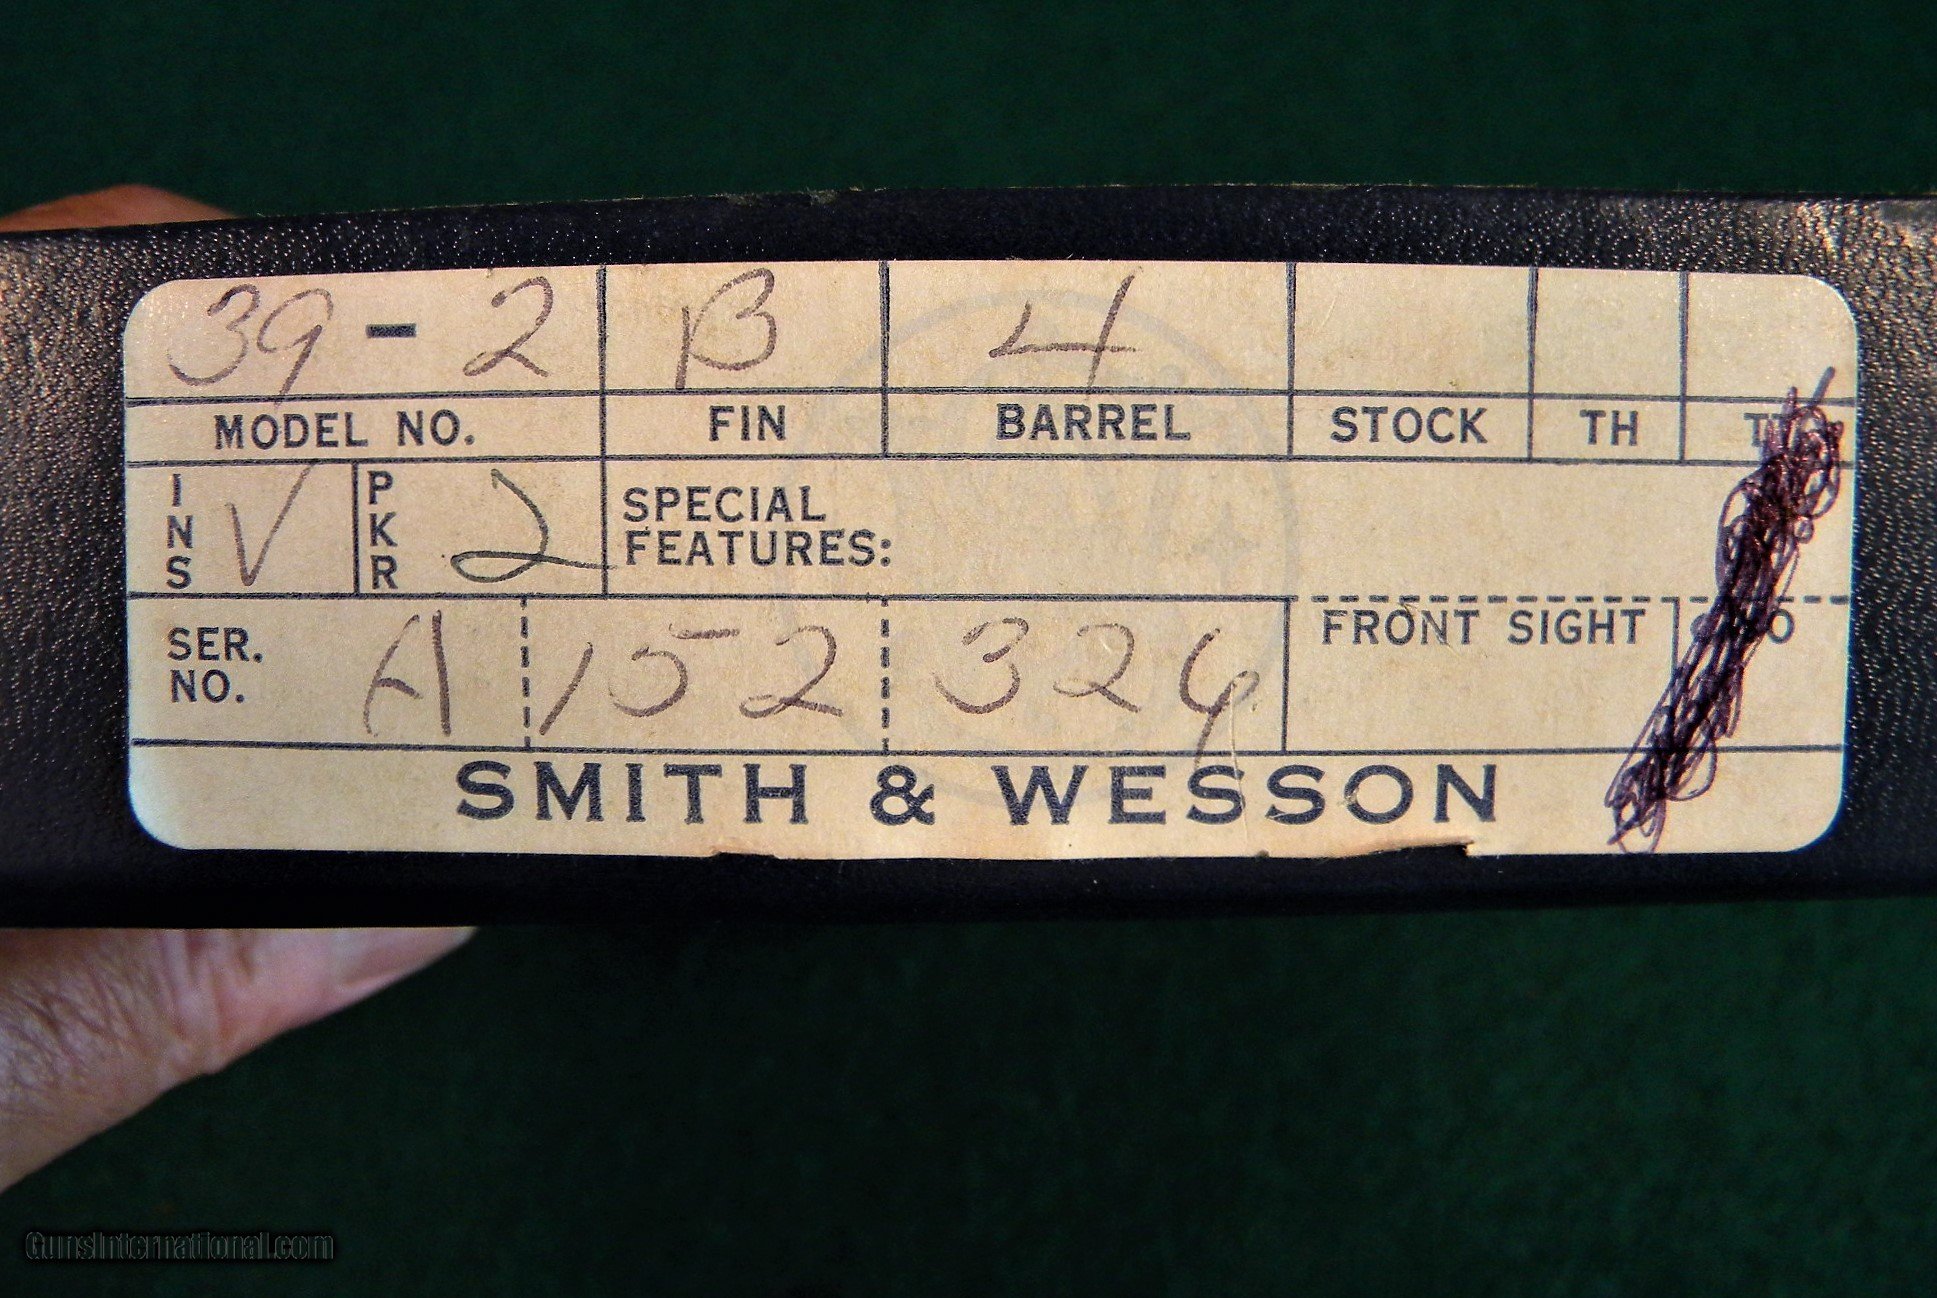 39-2 B 4
MODEL NO. FIN BARREL STOCK TH
INS V PKR 2 SPECIAL
FEATURES:
SER.
NO. A 152 326 FRONT SIGHT
SMITH & WESSON
GunsInternational.com